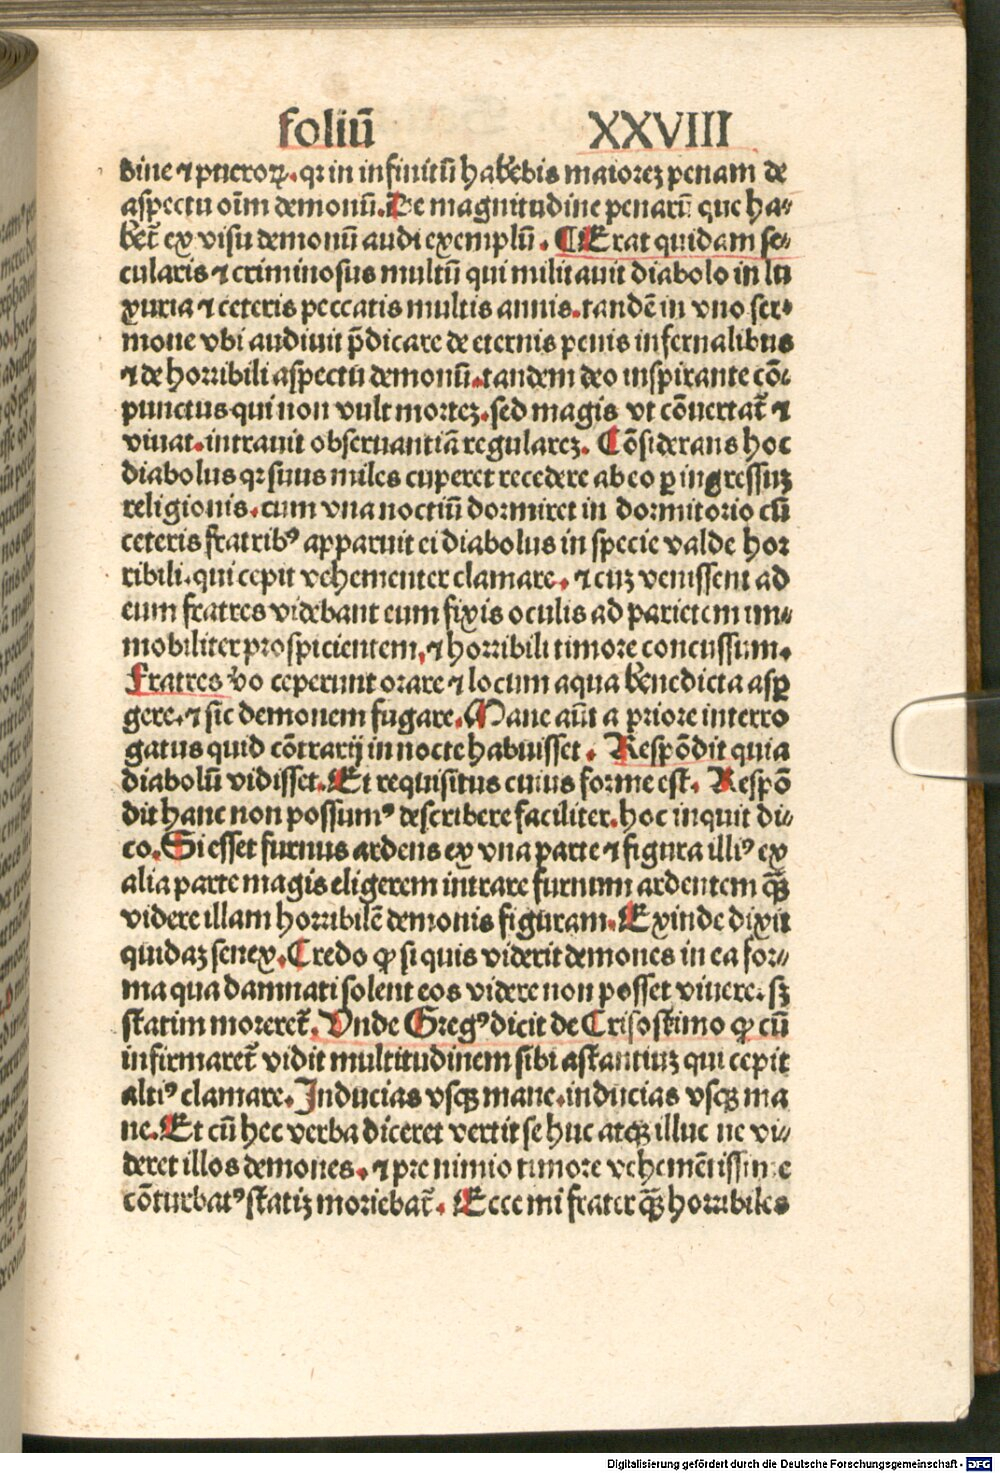 foliū XXVIII
dine ⁊ puerorꝝ. qꝛ in infinitū habebis maiorez penam de
aspectu oīm demonū. De magnitudine penarū que ha⸗
bet̄ ex visu demonū audi exemplū. ¶ Erat quidam se⸗
cularis ⁊ criminosus multū qui militauit diabolo in lu
xuria ⁊ ceteris peccatis multis annis. tandē in vno ser⸗
mone vbi audiuit p̄dicare de eternis penis infernalibus
⁊ de horribili aspectu demonū. tandem deo inspirante cō⸗
punctus qui non vult mortez. sed magis vt cōuertat̄ ⁊
viuat. intrauit obseruantiā regularez. Cōsiderans hoc
diabolus qꝛ suus miles cuperet recedere ab eo ꝑ ingressuz
religionis. cum vna noctiū dormiret in dormitorio cū
ceteris fratribꝰ apparuit ei diabolus in specie valde hor
ribili. qui cepit vehementer clamare. ⁊ cuz venissent ad
eum fratres videbant eum fixis oculis ad parietem im⸗
mobiliter prospicientem, ⁊ horribili timore concussum.
Fratres v̓o ceperunt orare ⁊ locum aqua benedicta asꝑ
gere. ⁊ sic demonem fugare. Mane aūt a priore interro
gatus quid cōtrarij in nocte habuisset. Respōdit quia
diabolū vidisset. Et requisitus cuius forme est. Respō
dit hanc non possumꝰ describere faciliter. hoc inquit di⸗
co. Si esset furnus ardens ex vna parte ⁊ figura illiꝰ ex
alia parte magis eligerem intrare furnum ardentem qꝫ̄
videre illam horribilē demonis figuram. Exinde dixit
quidaz senex. Credo ꝙ si quis viderit demones in ea for⸗
ma qua damnati solent eos videre non posset viuere. sꝫ
statim moreret̄. Vnde Gregꝰ dicit de Crisostimo ꝙ cū
infirmaret̄ vidit multitudinem sibi astantiuz qui cepit
altiꝰ clamare. Inducias vsqꝫ mane. inducias vsqꝫ ma
ne. Et cū hec verba diceret vertit se huc atqꝫ illuc ne vi⸗
deret illos demones. ⁊ pre nimio timore vehemētissime
cōturbatꝰ statiz moriebat̄. Ecce mi frater qꝫ̄ horribiles
Digitalisierung gefördert durch die Deutsche Forschungsgemeinschaft - DFG